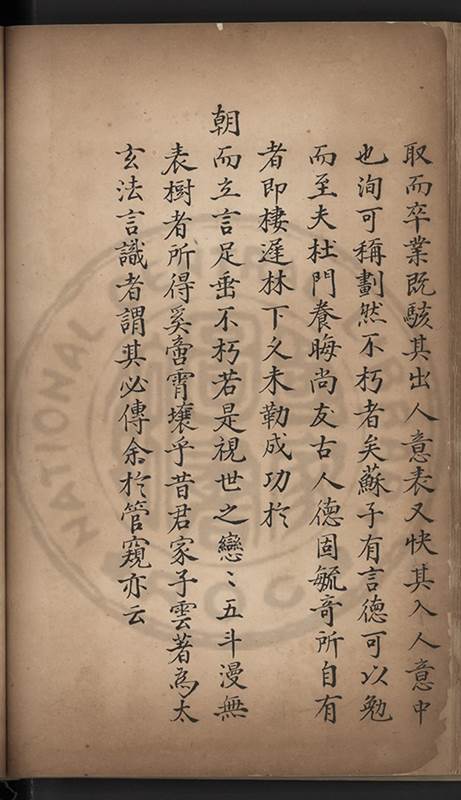 取而卒業既駭其出人意表又快其入人意中
也洵可稱劃然不朽者矣蘇子有言德可以勉
而至夫杜門養晦尚友古人德固毓竒所自有
者即棲遲林下久未勒成功於
朝而立言足垂不朽若是視世之戀〻五斗漫無
表樹者所得奚啻霄壤乎昔君家子雲著為太
玄法言識者謂其必傳余於管窺亦云
NATIONAL